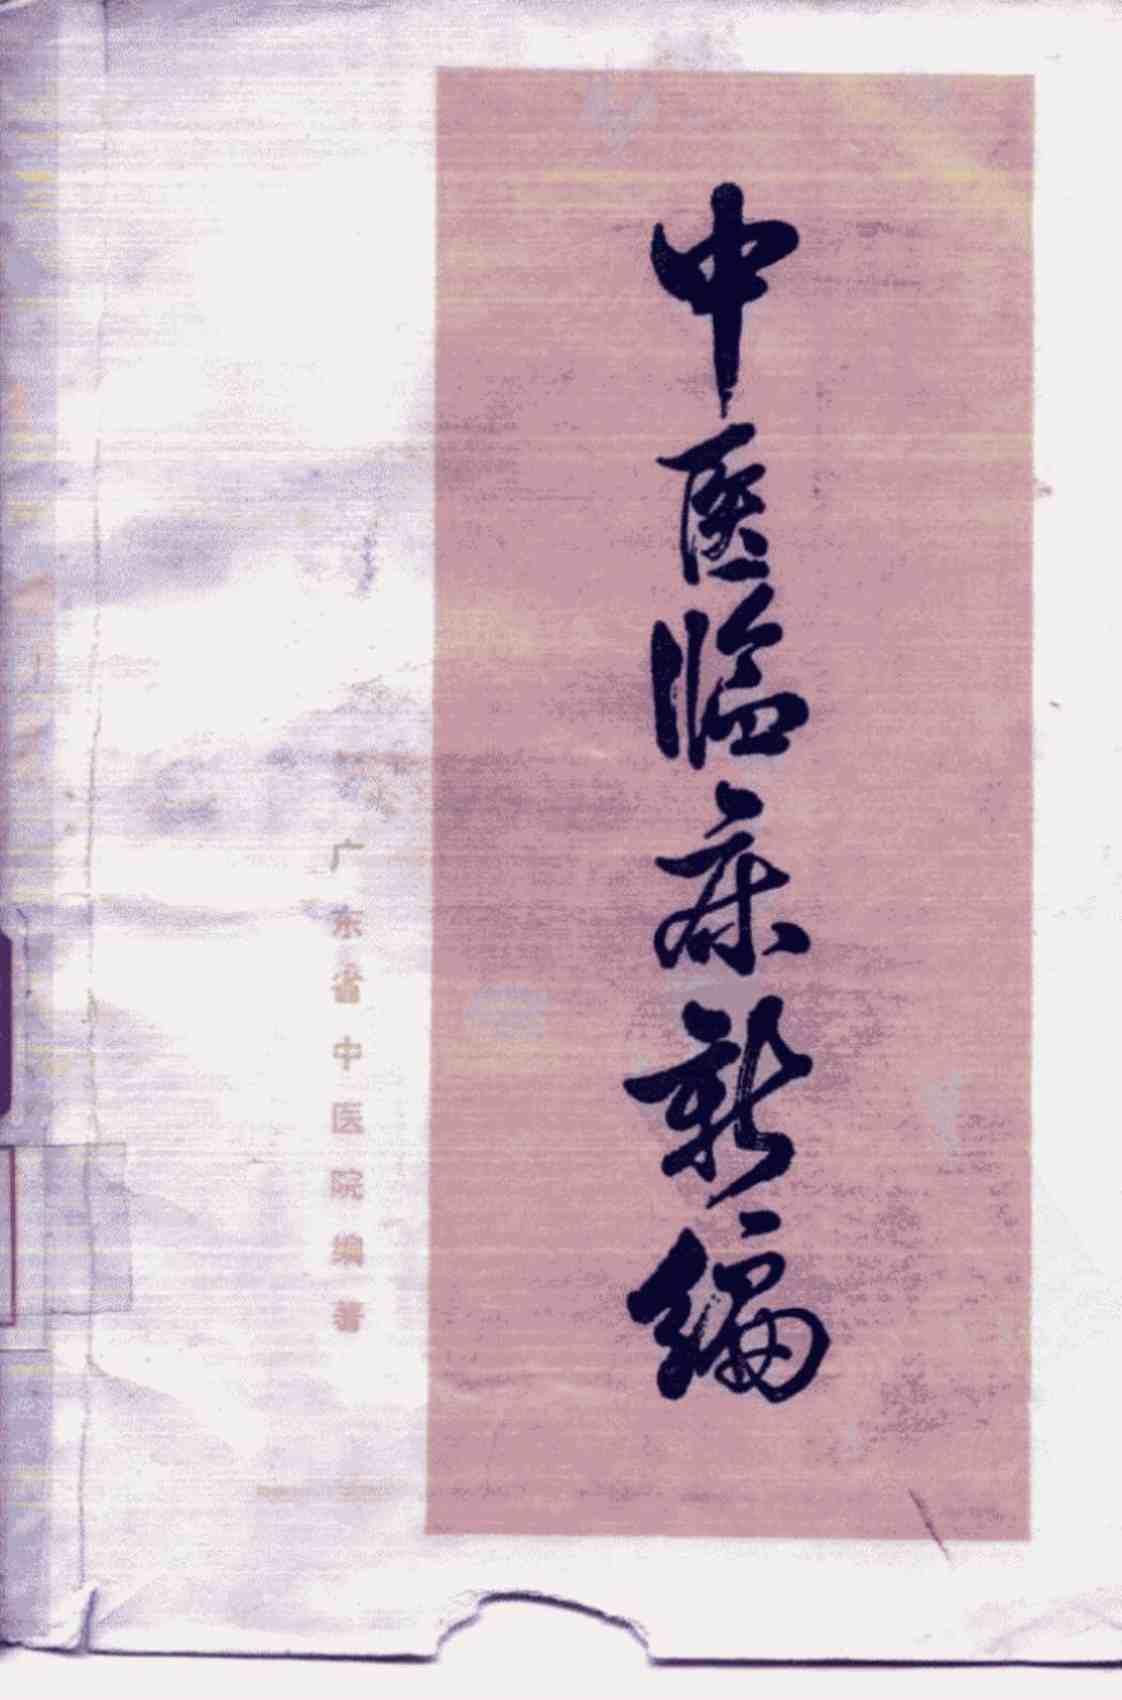 中医临床新编
广东省中医院编著